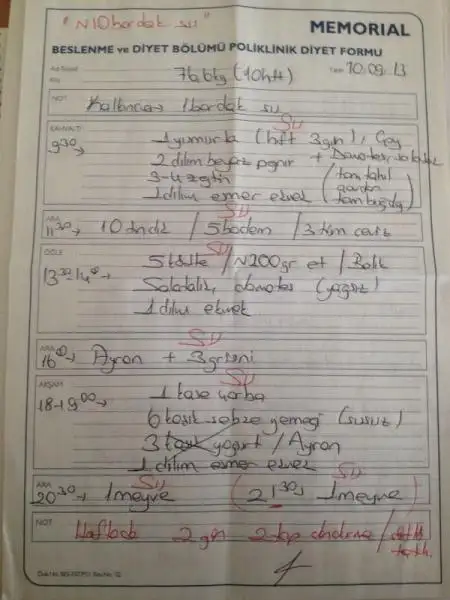 "~10 bardak su"
MEMORIAL
BESLENME ve DİYET BÖLÜMÜ POLİKLİNİK DİYET FORMU
Adı Soyadı
Tarih 10.09.13
76,6kg (10hft)
NOT
Kalkınca 1 bardak su
Su
KAHVALTI
9:30 → 1 yumurta (hft 3 gün), Çay
2 dilim beyaz peynir + Domates, salatalık
3-4 zeytin (tam tahıl
çavdar
1 dilim esmer ekmek tam buğday)
Su
ARA
11:30 → 10 fındık / 5 badem / 3 tüm ceviz
ÖĞLE
Su
13:30-14:00 → 5 köfte / ~200gr et / Balık
Salatalık, domates (yağsız)
1 dilim ekmek
Su
ARA
16:00 → Ayran + 3 grissini
Su
AKŞAM
18-19:00 → 1 kase çorba
6 kaşık sebze yemeği (susuz)
3 kaşık yoğurt / Ayran
1 dilim esmer ekmek
Su Su
ARA
20:30 → 1 meyve (21:30 → 1 meyve)
NOT
Haftada 2 gün 2 top dondurma /